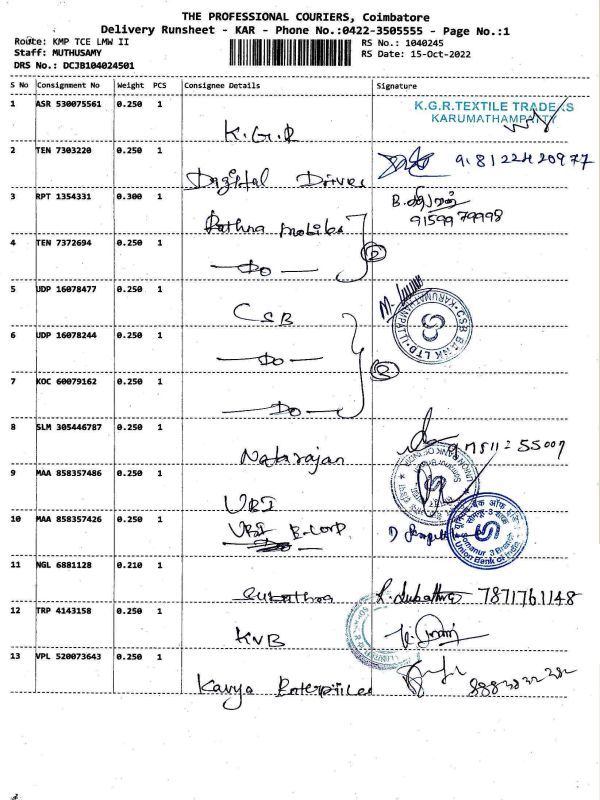 THE PROFESSIONAL COURIERS, Coimbatore
Delivery Runsheet - KAR - Phone No.:0422-3505555 - Page No.:1
Route: KMP TCE LMW II
RS No.: 1040245
Staff: MUTHUSAMY
RS Date: 15-Oct-2022
DRS No.: DCJB104024501
S No Consignment No Weight PCS Consignee Details Signature
1 ASR 530075561 0.250 1 K.G.R K.G.R.TEXTILE TRADERS
KARUMATHAMPATTY
2 TEN 7303220 0.250 1 Digital Drives
3 RPT 1354331 0.300 1 Rathna mobiles 9159979998
4 TEN 7372694 0.250 1 Do
5 UDP 16078477 0.250 1 CSB CSB BANK LTD
6 UDP 16078244 0.250 1 Do
7 KOC 60079162 0.250 1 Do
8 SLM 305446787 0.250 1 Natarajan
9 MAA 858357486 0.250 1 UBI UNION BANK OF INDIA
10 MAA 858357426 0.250 1 UBI B.Corp यूनियन बैंक ऑफ इंडिया
Somanur 3 Branch
Union Bank of India
11 NGL 6881128 0.210 1 Subathra 7871761148
12 TRP 4143158 0.250 1 KVB
13 VPL 520073643 0.250 1 Kavya Enterprises